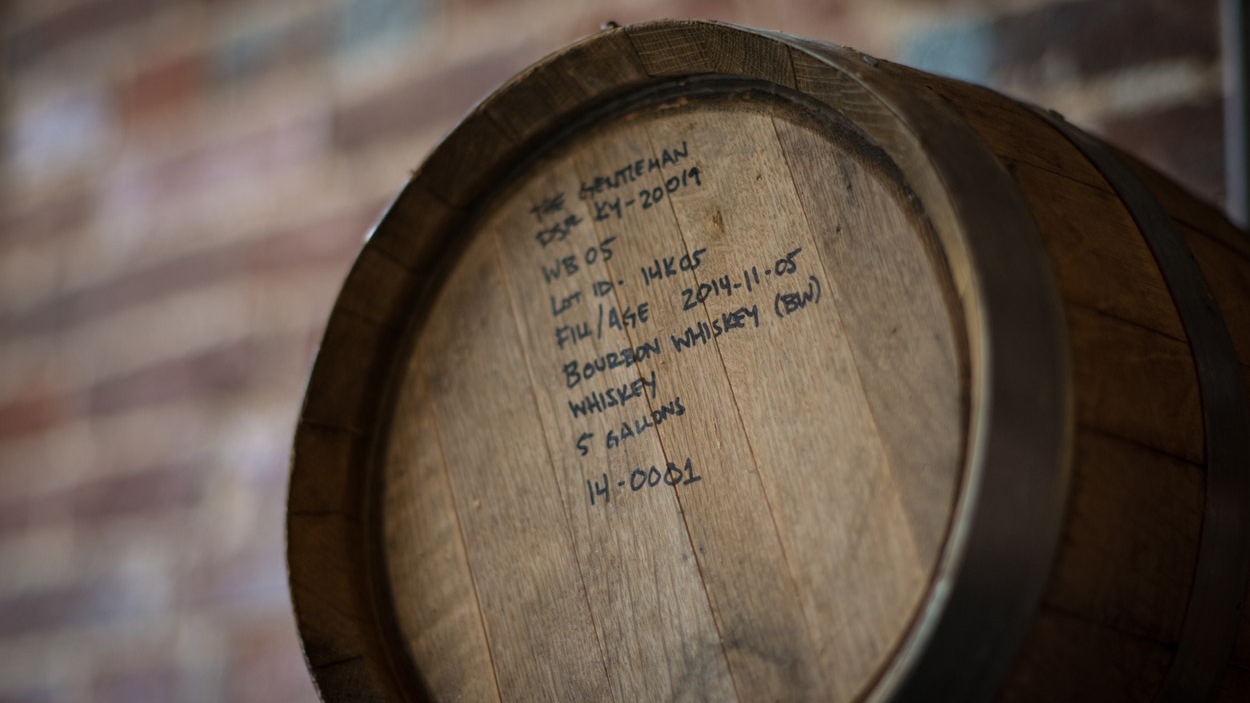 THE GENTLEMAN
DSP KY-20019
WB 05
LOT ID- 14K05
FILL/AGE 2014-11-05
BOURBON WHISKEY (BW)
WHISKEY
5 GALLONS
14-0001